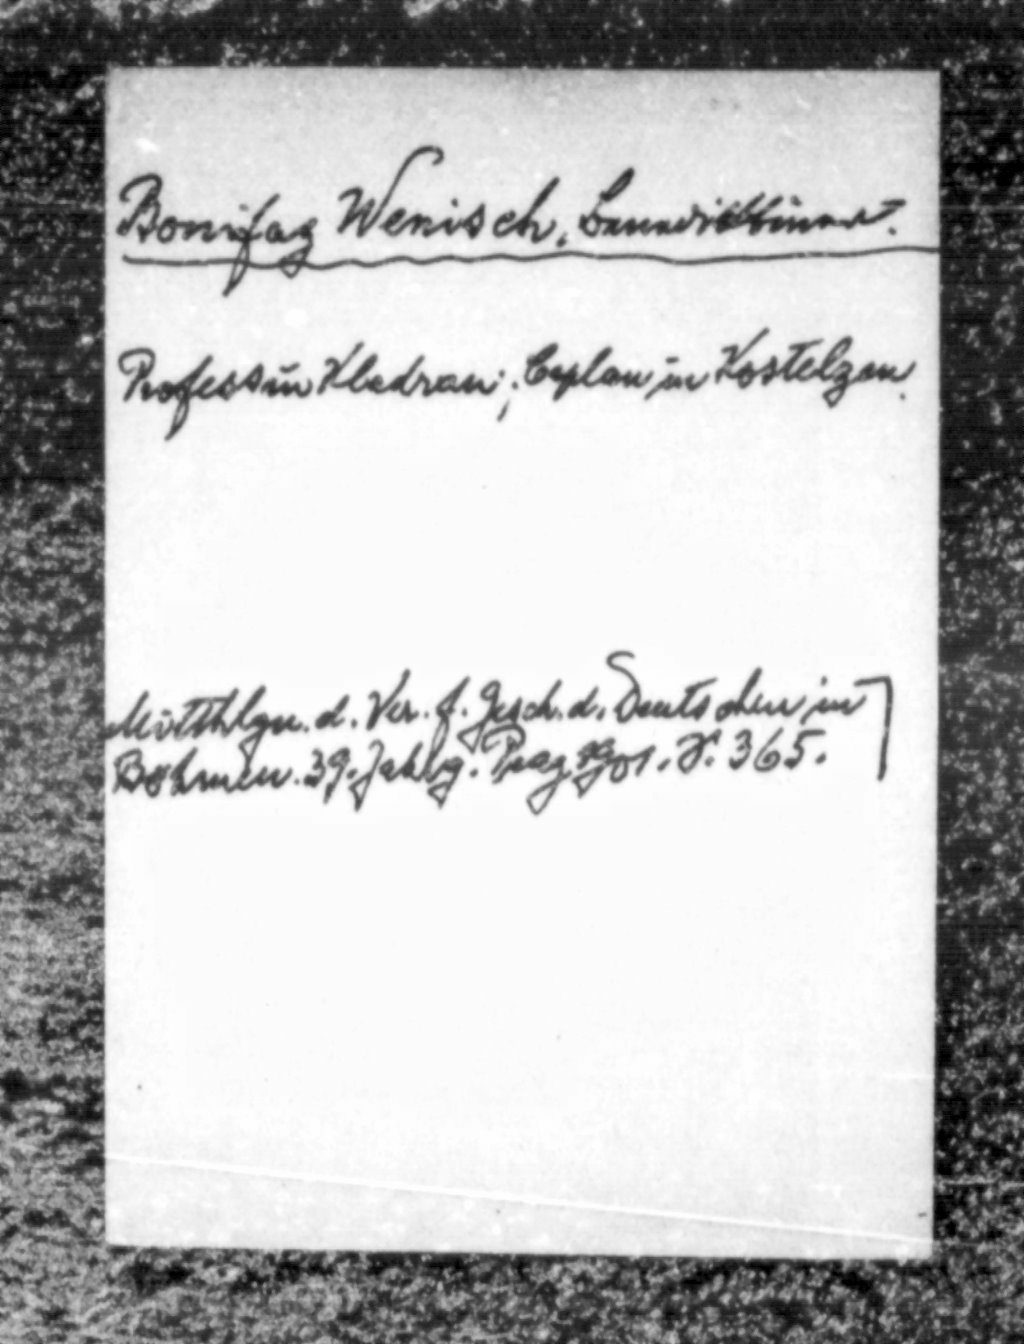 Bonifaz Wenisch, Benediktiner.
Profess in Kladrau; Caplan in Kostelzen.
Mitthlgn. d. Ver. f. Gesch. d. Deutschen in
Böhmen. 39. Jahrg. Prag 1901. S. 365.